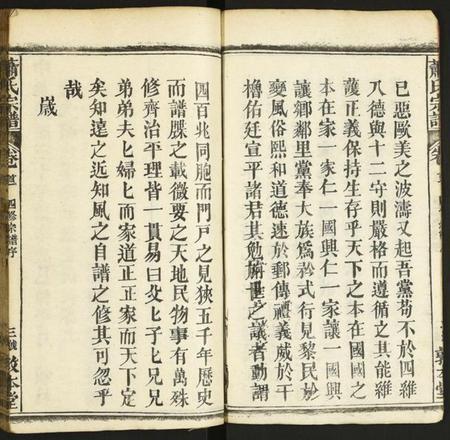 已惡歐美之波濤又起吾黨苟不於四維
八德與十二守則嚴格而遵循之其能維
護正義保持生存乎天下之本在國國之
本在家一家仁一國興仁一家讓一國興
讓鄉鄰里黨奉大族爲矜式行見黎民於
變風俗熙和道德速於郵傳禮義威於干
櫓佑廷宣平諸君其勉旃世之議者動謂
四百兆同胞而門戶之見狹五千年歷史
而譜牒之載微要之天地民物事有萬殊
修齊治平理皆一貫易曰父父子子兄兄
弟弟夫夫婦婦而家道正正家而天下定
矣知遠之近知風之自譜之修其可忽乎
哉
歲
蕭氏宗譜
卷首
四修宗譜序
三
敦本堂
蕭氏宗譜
卷
敦本堂